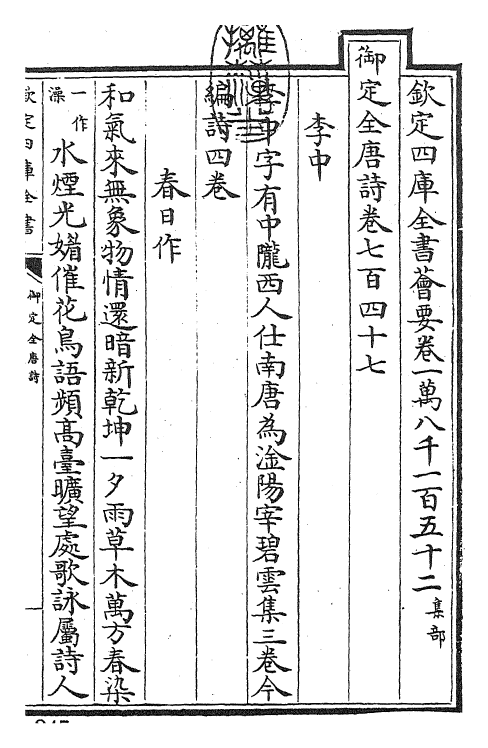 欽定四庫全書薈要卷一萬八千一百五十二集部
御定全唐詩卷七百四十七
李中
李中字有中隴西人仕南唐為淦陽宰碧雲集三卷今
編詩四卷
春日作
和氣來無象物情還暗新乾坤一夕雨草木萬方春染
一作澡水煙光媚催花鳥語頻高臺曠望處歌詠屬詩人
欽定四庫全書
御定全唐詩